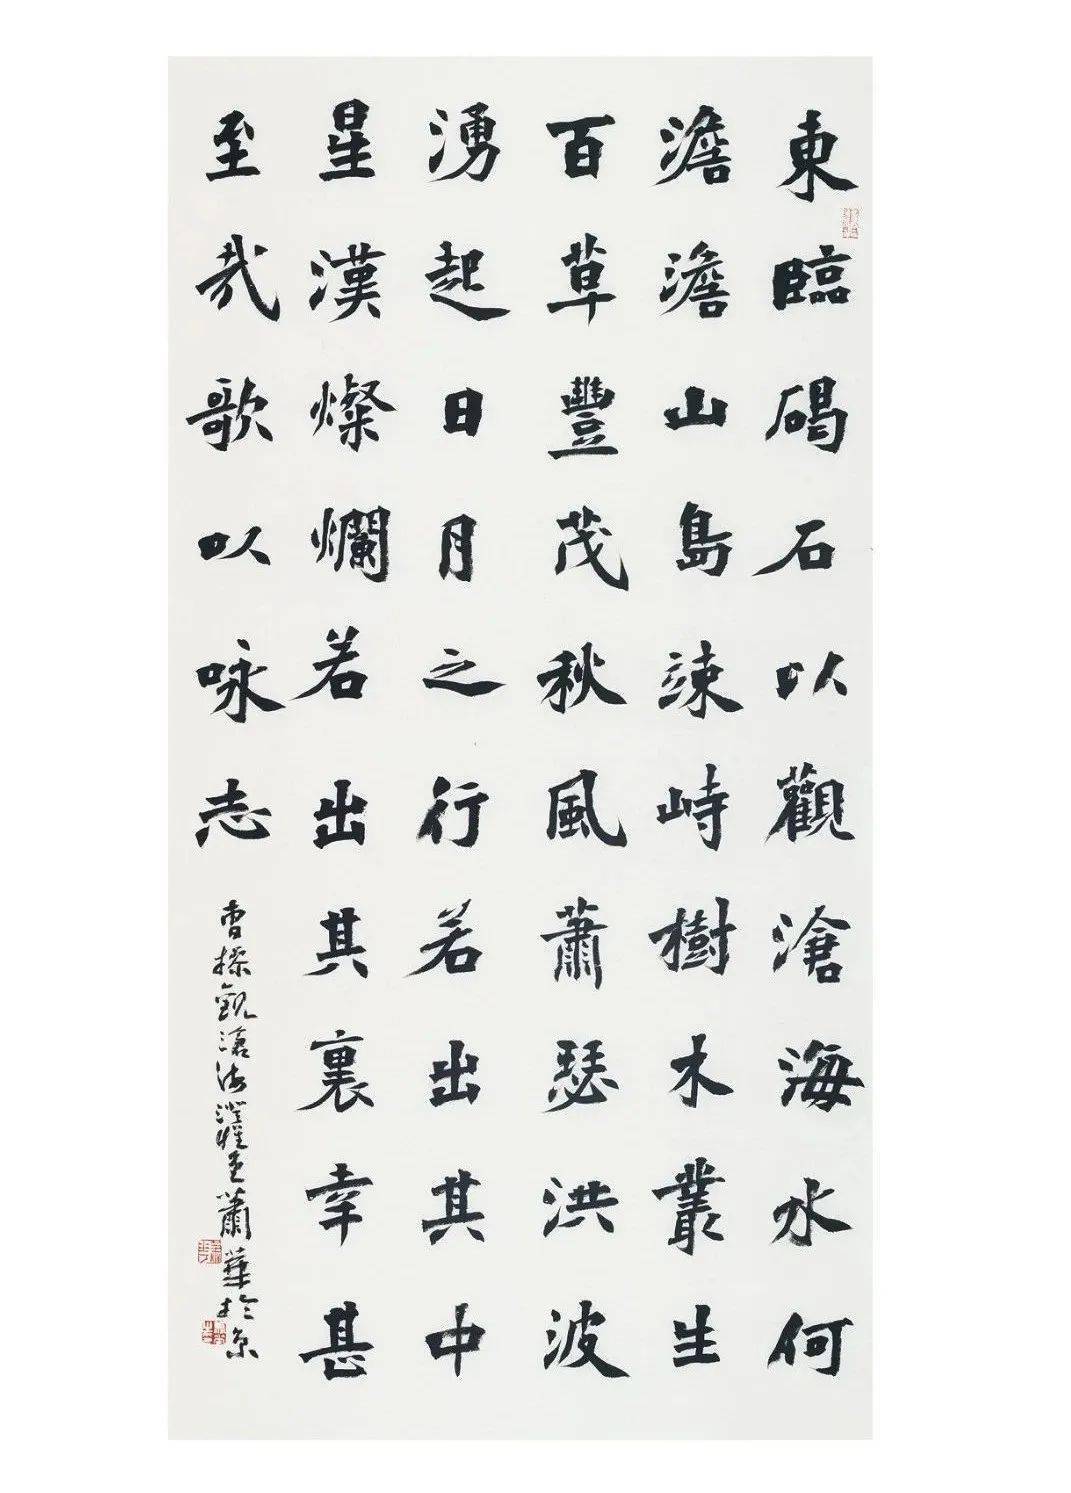 東臨碣石以觀滄海水何
澹澹山島竦峙樹木叢生
百草豐茂秋風蕭瑟洪波
湧起日月之行若出其中
星漢燦爛若出其裏幸甚
至哉歌以咏志
曹操觀滄海灌邑蕭華於京